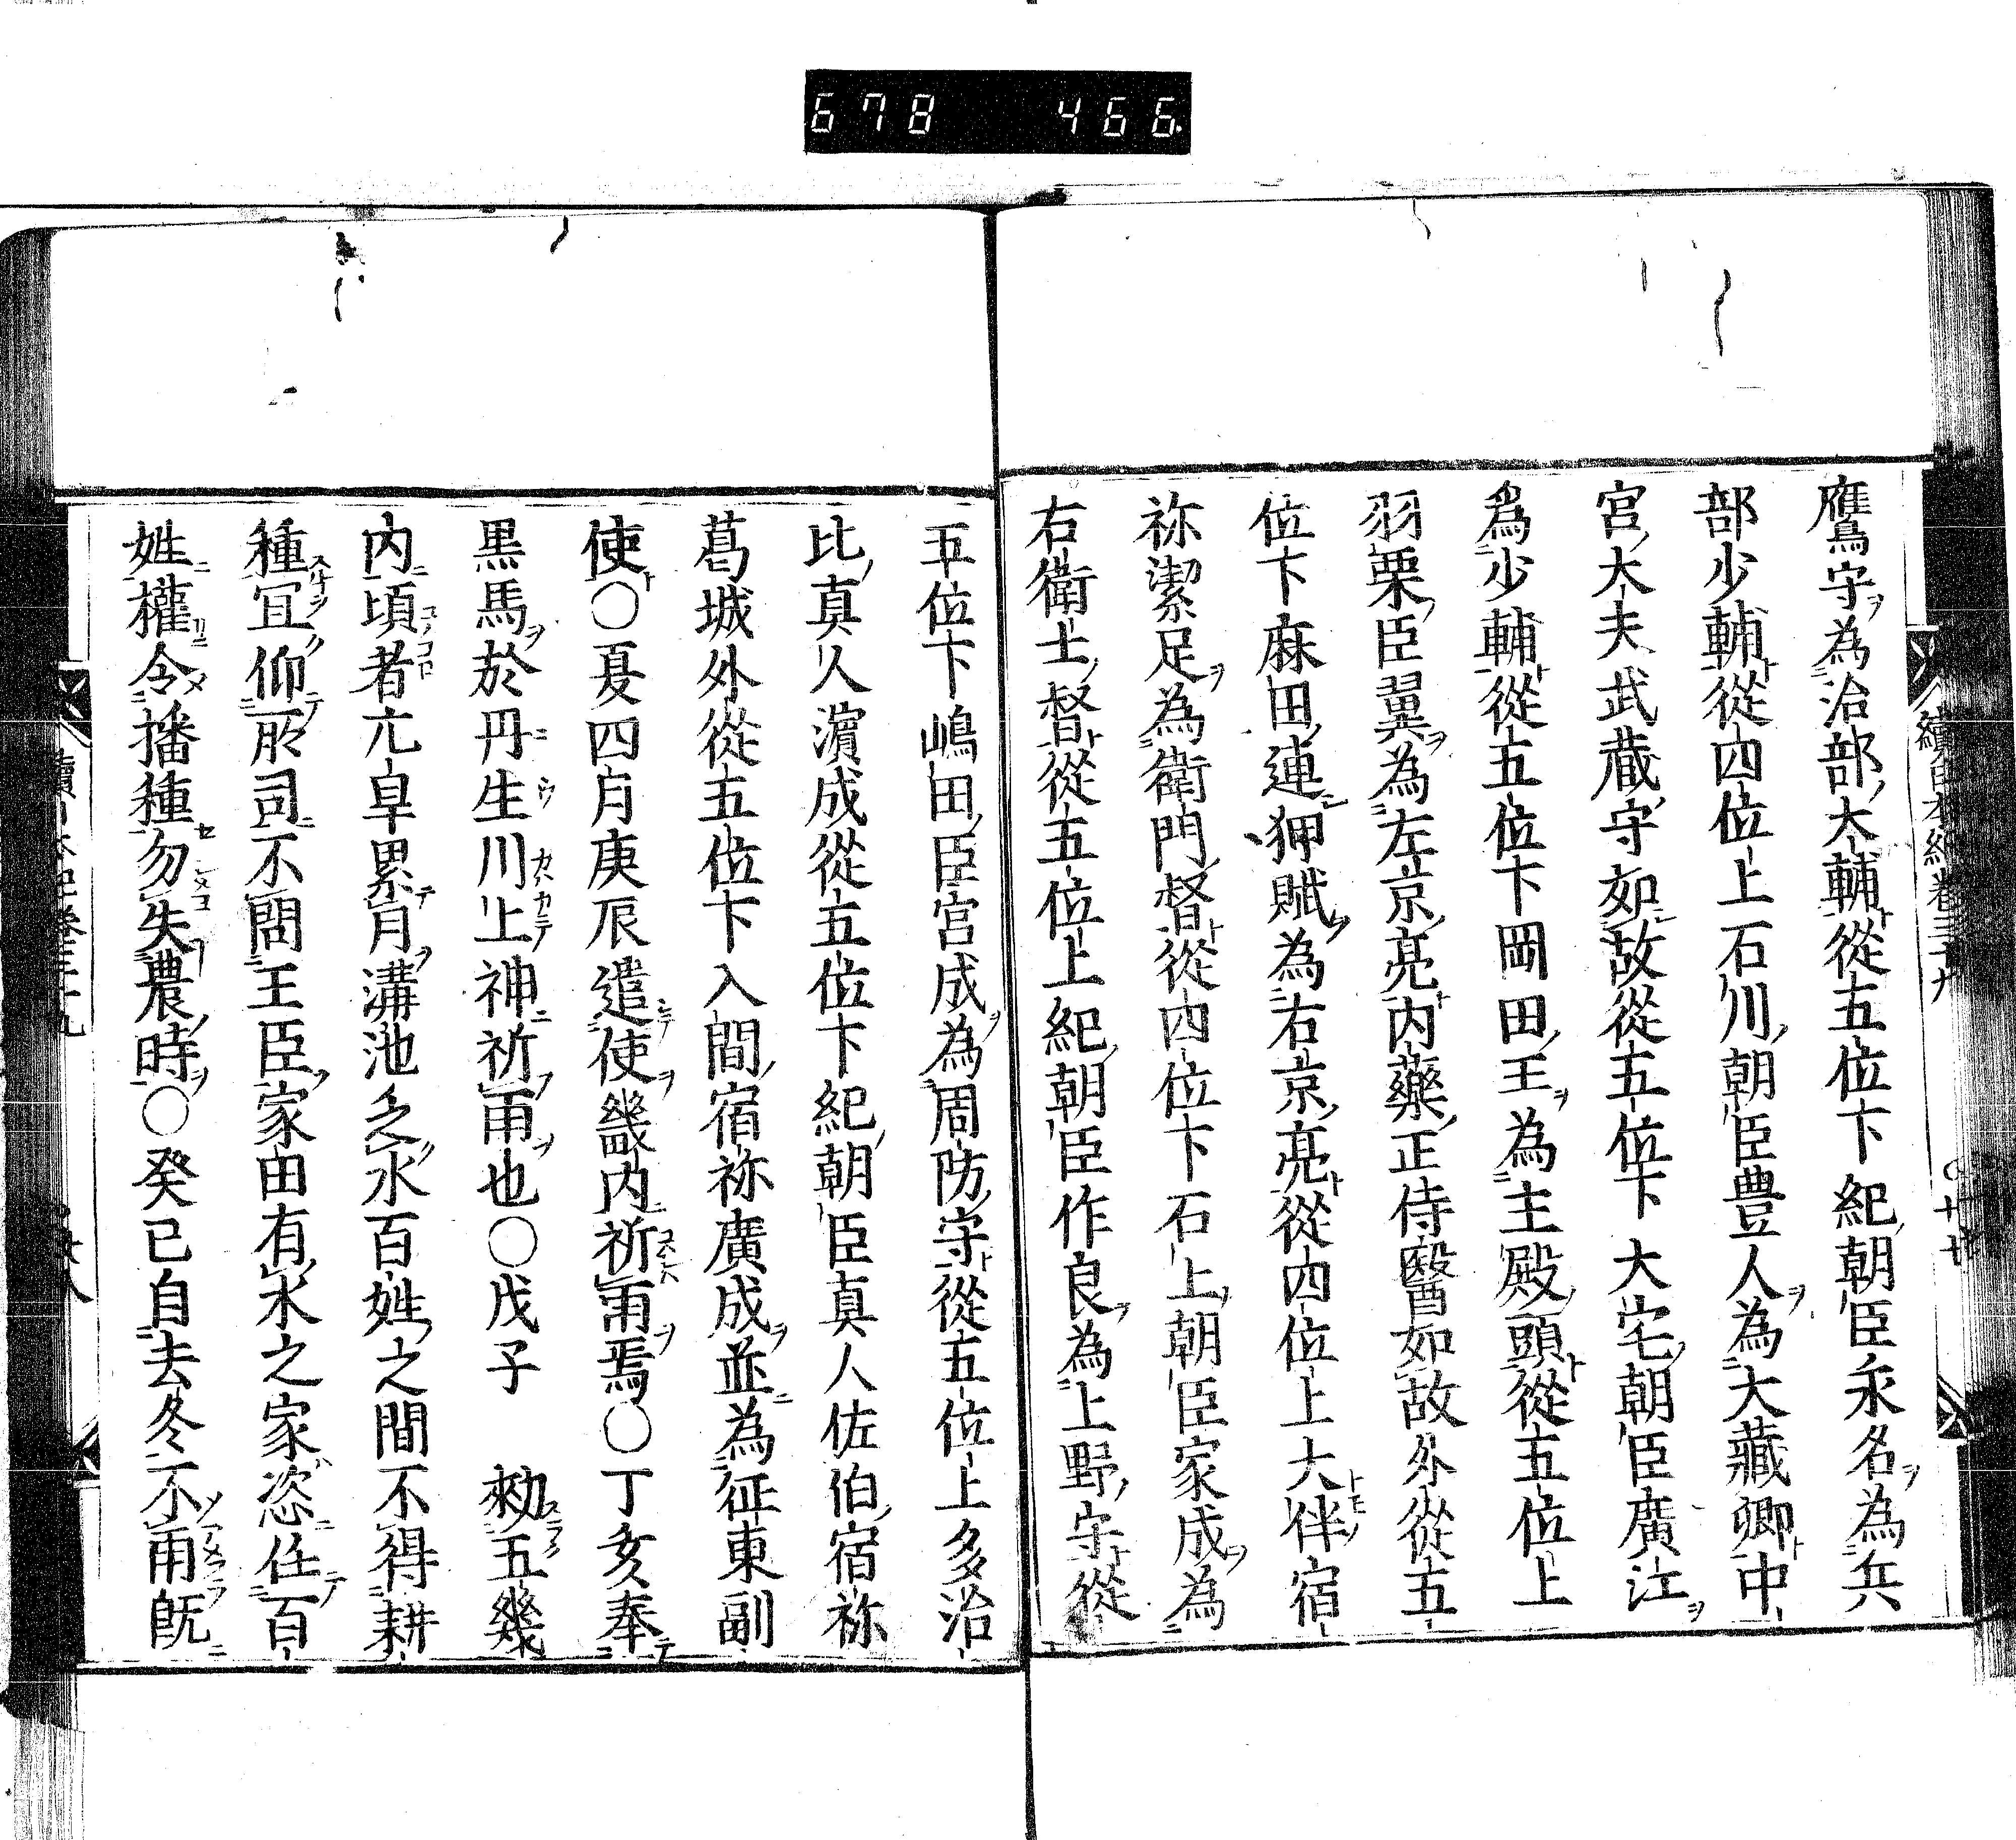 678 466
鷹守為治部大輔從五位下紀朝臣永名為兵
部少輔從四位上石川朝臣豊人為大藏卿中
宮大夫武蔵守如故從五位下大宅朝臣廣江
爲少輔從五位下岡田王為主殿頭從五位上
羽栗臣翼為左京亮内藥正侍醫如故外從五
位下麻田連狎賦為右京亮從四位上大伴宿
祢潔足為衛門督從四位下石上朝臣家成為
右衛士督從五位上紀朝臣作良為上野守從
五位下嶋田臣宮成為周防守從五位上多治
比真人濵成從五位下紀朝臣真人佐伯宿祢
葛城外從五位下入間宿祢廣成並為征東副
使○夏四月庚辰遣使畿内祈雨焉○丁亥奉
黒馬於丹生川上神祈雨也○戊子 勑五幾
内頃者亢旱累月溝池乏水百姓之間不得耕
種冝仰所司不問王臣家由有水之家恣任百
姓權令播種勿失農時○癸巳自去冬不雨既
續日本紀巻三十九